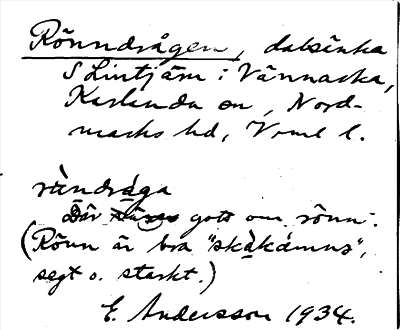 Rönndrågen, dalsänka
S Lintjärn i Vännacka,
Karlanda sn, Nord-
marks hd, Vrml l.
rǜndrága
Där gott om rönn.
(Rönn är bra "skàkámns",
segt o. starkt.)
E. Andersson 1934.